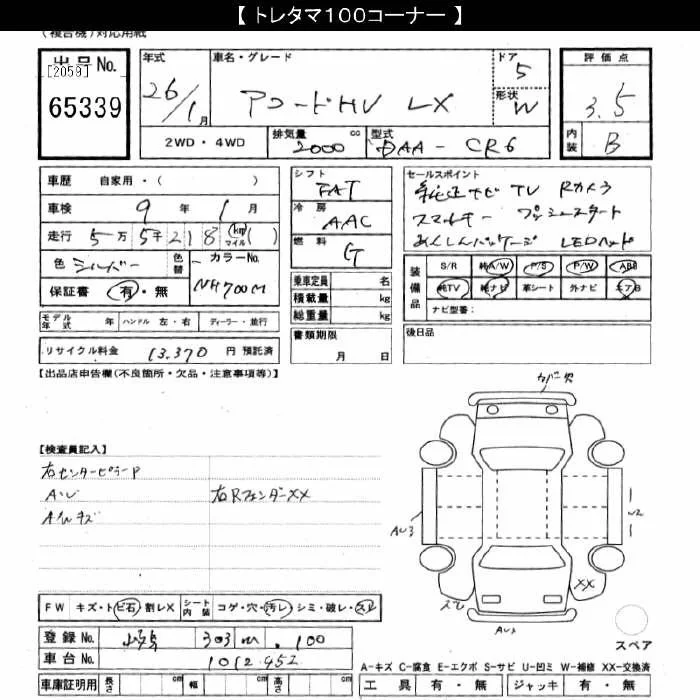 【 トレタマ100コーナー 】
(複合機)対応用紙
出品No.
[2059]
65339
年式
26/1月
車名・グレード
アコードHV LX
ドア
5
形状
W
評価点
3.5
内装
B
2WD・4WD
排気量 cc
2000
型式
DAA-CR6
車歴 自家用・( )
車検 9年 1月
走行 5万5千218 km マイル ( )
色 シルバー 色替
カラーNo.
NH700M
保証書 有・無
シフト
FAT
冷房
AAC
燃料
G
乗車定員 名
積載量 kg
総重量 kg
セールスポイント
純正ナビ TV Rカメラ
スマートキー プッシュスタート
あんしんパッケージ LEDヘッド
装備品
S/R 純A/W P/S P/W ABS
純TV 純ナビ 革シート 外ナビ エアB
ナビ型番:
モデル年式 年 ハンドル 左・右 ディーラー・並行
リサイクル料金 13,370 円 預託済
書類期限
月 日
後日品
【出品店申告欄(不良箇所・欠品・注意事項等)】
カバー欠
【検査員記入】
右センターピラーP
AU
右Rフェンダー XX
A/Wキズ
AU3
U2
XX
FW キズ・トビ石 割レX
シート内装 コゲ・穴・汚レ・シミ・破レ・スレ
スペア
登録No. 303 100
車台No. 1012952
A-キズ C-腐食 E-エクボ S-サビ U-凹ミ W-補修 XX-交換済
車庫証明用 長さ cm 幅 cm 高さ cm
工具 有・無 ジャッキ 有・無